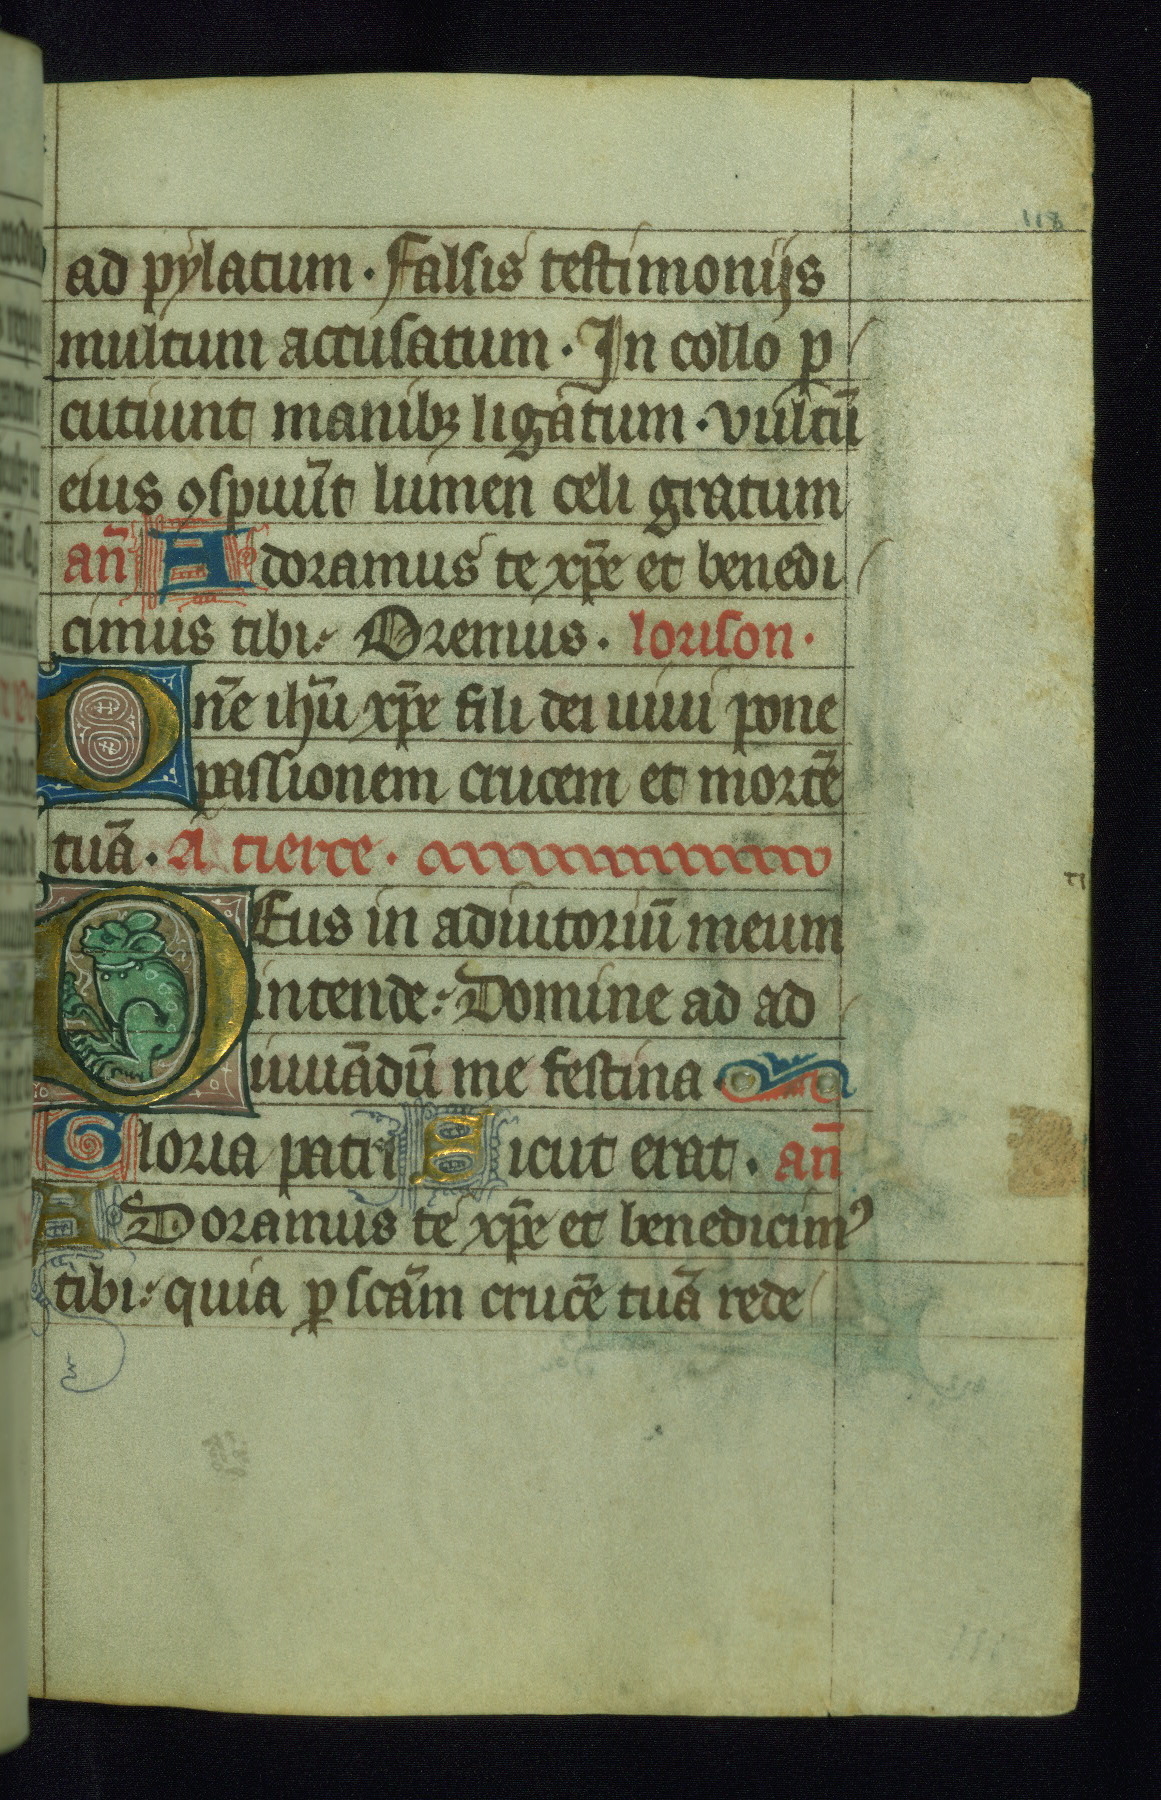 118
ad pylatum · Falsis testimonijs
multum accusatum · In collo p̲
cutiunt manibꝫ ligatum · vultū
eius ꝯspuūt lumen celi gratum
an̄ Adoramus te xp̄e et benedi
cimus tibi· Oremus · lorison ·
Dn̄e ihū xp̄e fili dei uiui pone
passionem crucem et mortē
tuā · A tierce ·
DEus in adiutoriū meum
intende· Domine ad ad
iuuādū me festina
Gloria patri Sicut erat · an̄
ADoramus te xp̄e et benedicimꝰ
tibi· quia ꝑ scām crucē tuā rede